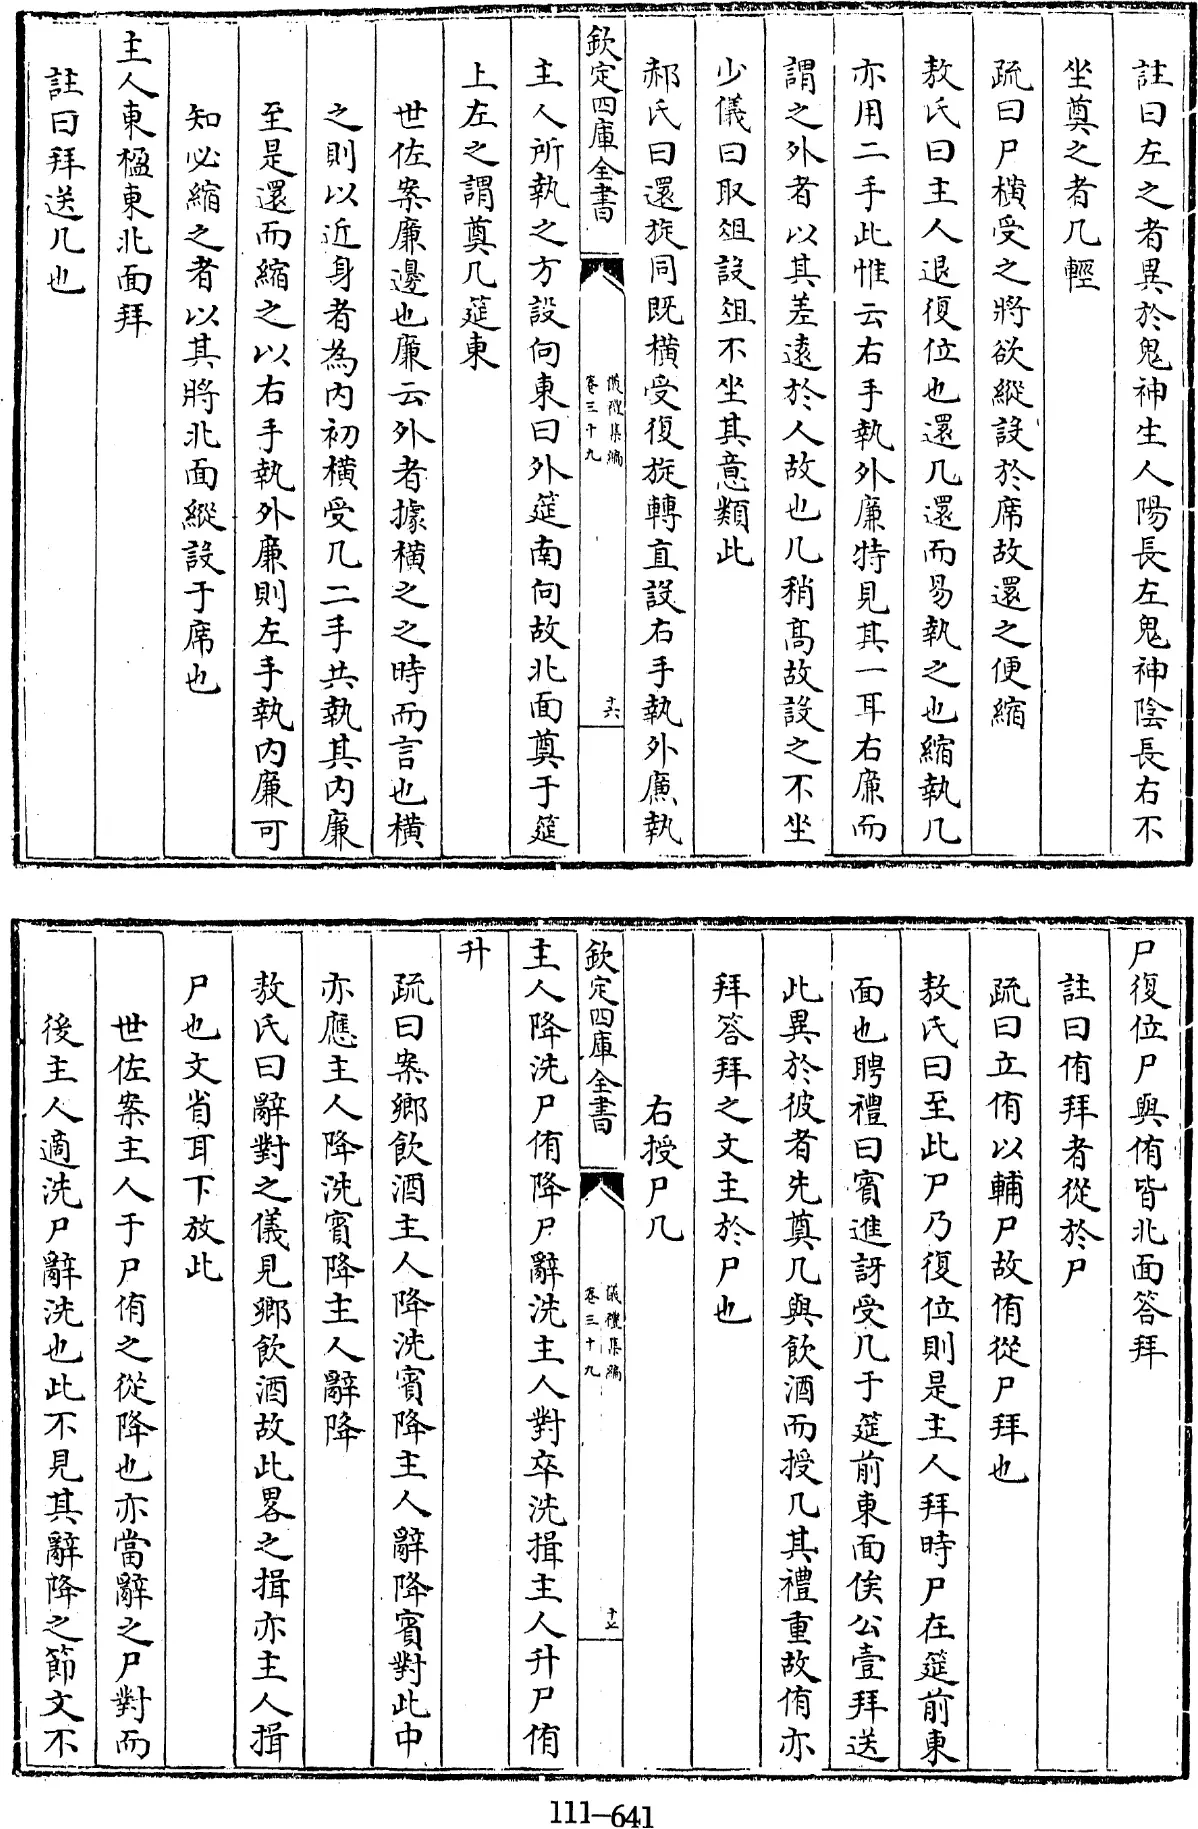 註曰左之者異於鬼神生人陽長左鬼神陰長右不
坐奠之者几輕
疏曰尸橫受之將欲縱設於席故還之便縮
敖氏曰主人退復位也還几還而易執之也縮執几
亦用二手此惟云右手執外廉特見其一耳右廉而
謂之外者以其差遠於人故也几稍高故設之不坐
少儀曰取俎設俎不坐其意類此
郝氏曰還旋同既橫受復旋轉直設右手執外廉執
欽定四庫全書
儀禮集編
卷三十九
十六
主人所執之方設向東曰外筵南向故北面奠于筵
上左之謂奠几筵東
世佐案廉邊也廉云外者據橫之之時而言也橫
之則以近身者為內初橫受几二手共執其內廉
至是還而縮之以右手執外廉則左手執內廉可
知必縮之者以其將北面縱設于席也
主人東楹東北面拜
註曰拜送几也
尸復位尸與侑皆北面答拜
註曰侑拜者從於尸
疏曰立侑以輔尸故侑從尸拜也
敖氏曰至此尸乃復位則是主人拜時尸在筵前東
面也聘禮曰賓進訝受几于筵前東面俟公壹拜送
此異於彼者先奠几與飲酒而授几其禮重故侑亦
拜答拜之文主於尸也
右授尸几
欽定四庫全書
儀禮集編
卷三十九
十七
主人降洗尸侑降尸辭洗主人對卒洗揖主人升尸侑
升
疏曰案鄉飲酒主人降洗賓降主人辭降賓對此中
亦應主人降洗賓降主人辭降
敖氏曰辭對之儀見鄉飲酒故此畧之揖亦主人揖
尸也文省耳下放此
世佐案主人于尸侑之從降也亦當辭之尸對而
後主人適洗尸辭洗也此不見其辭降之節文不
111-641